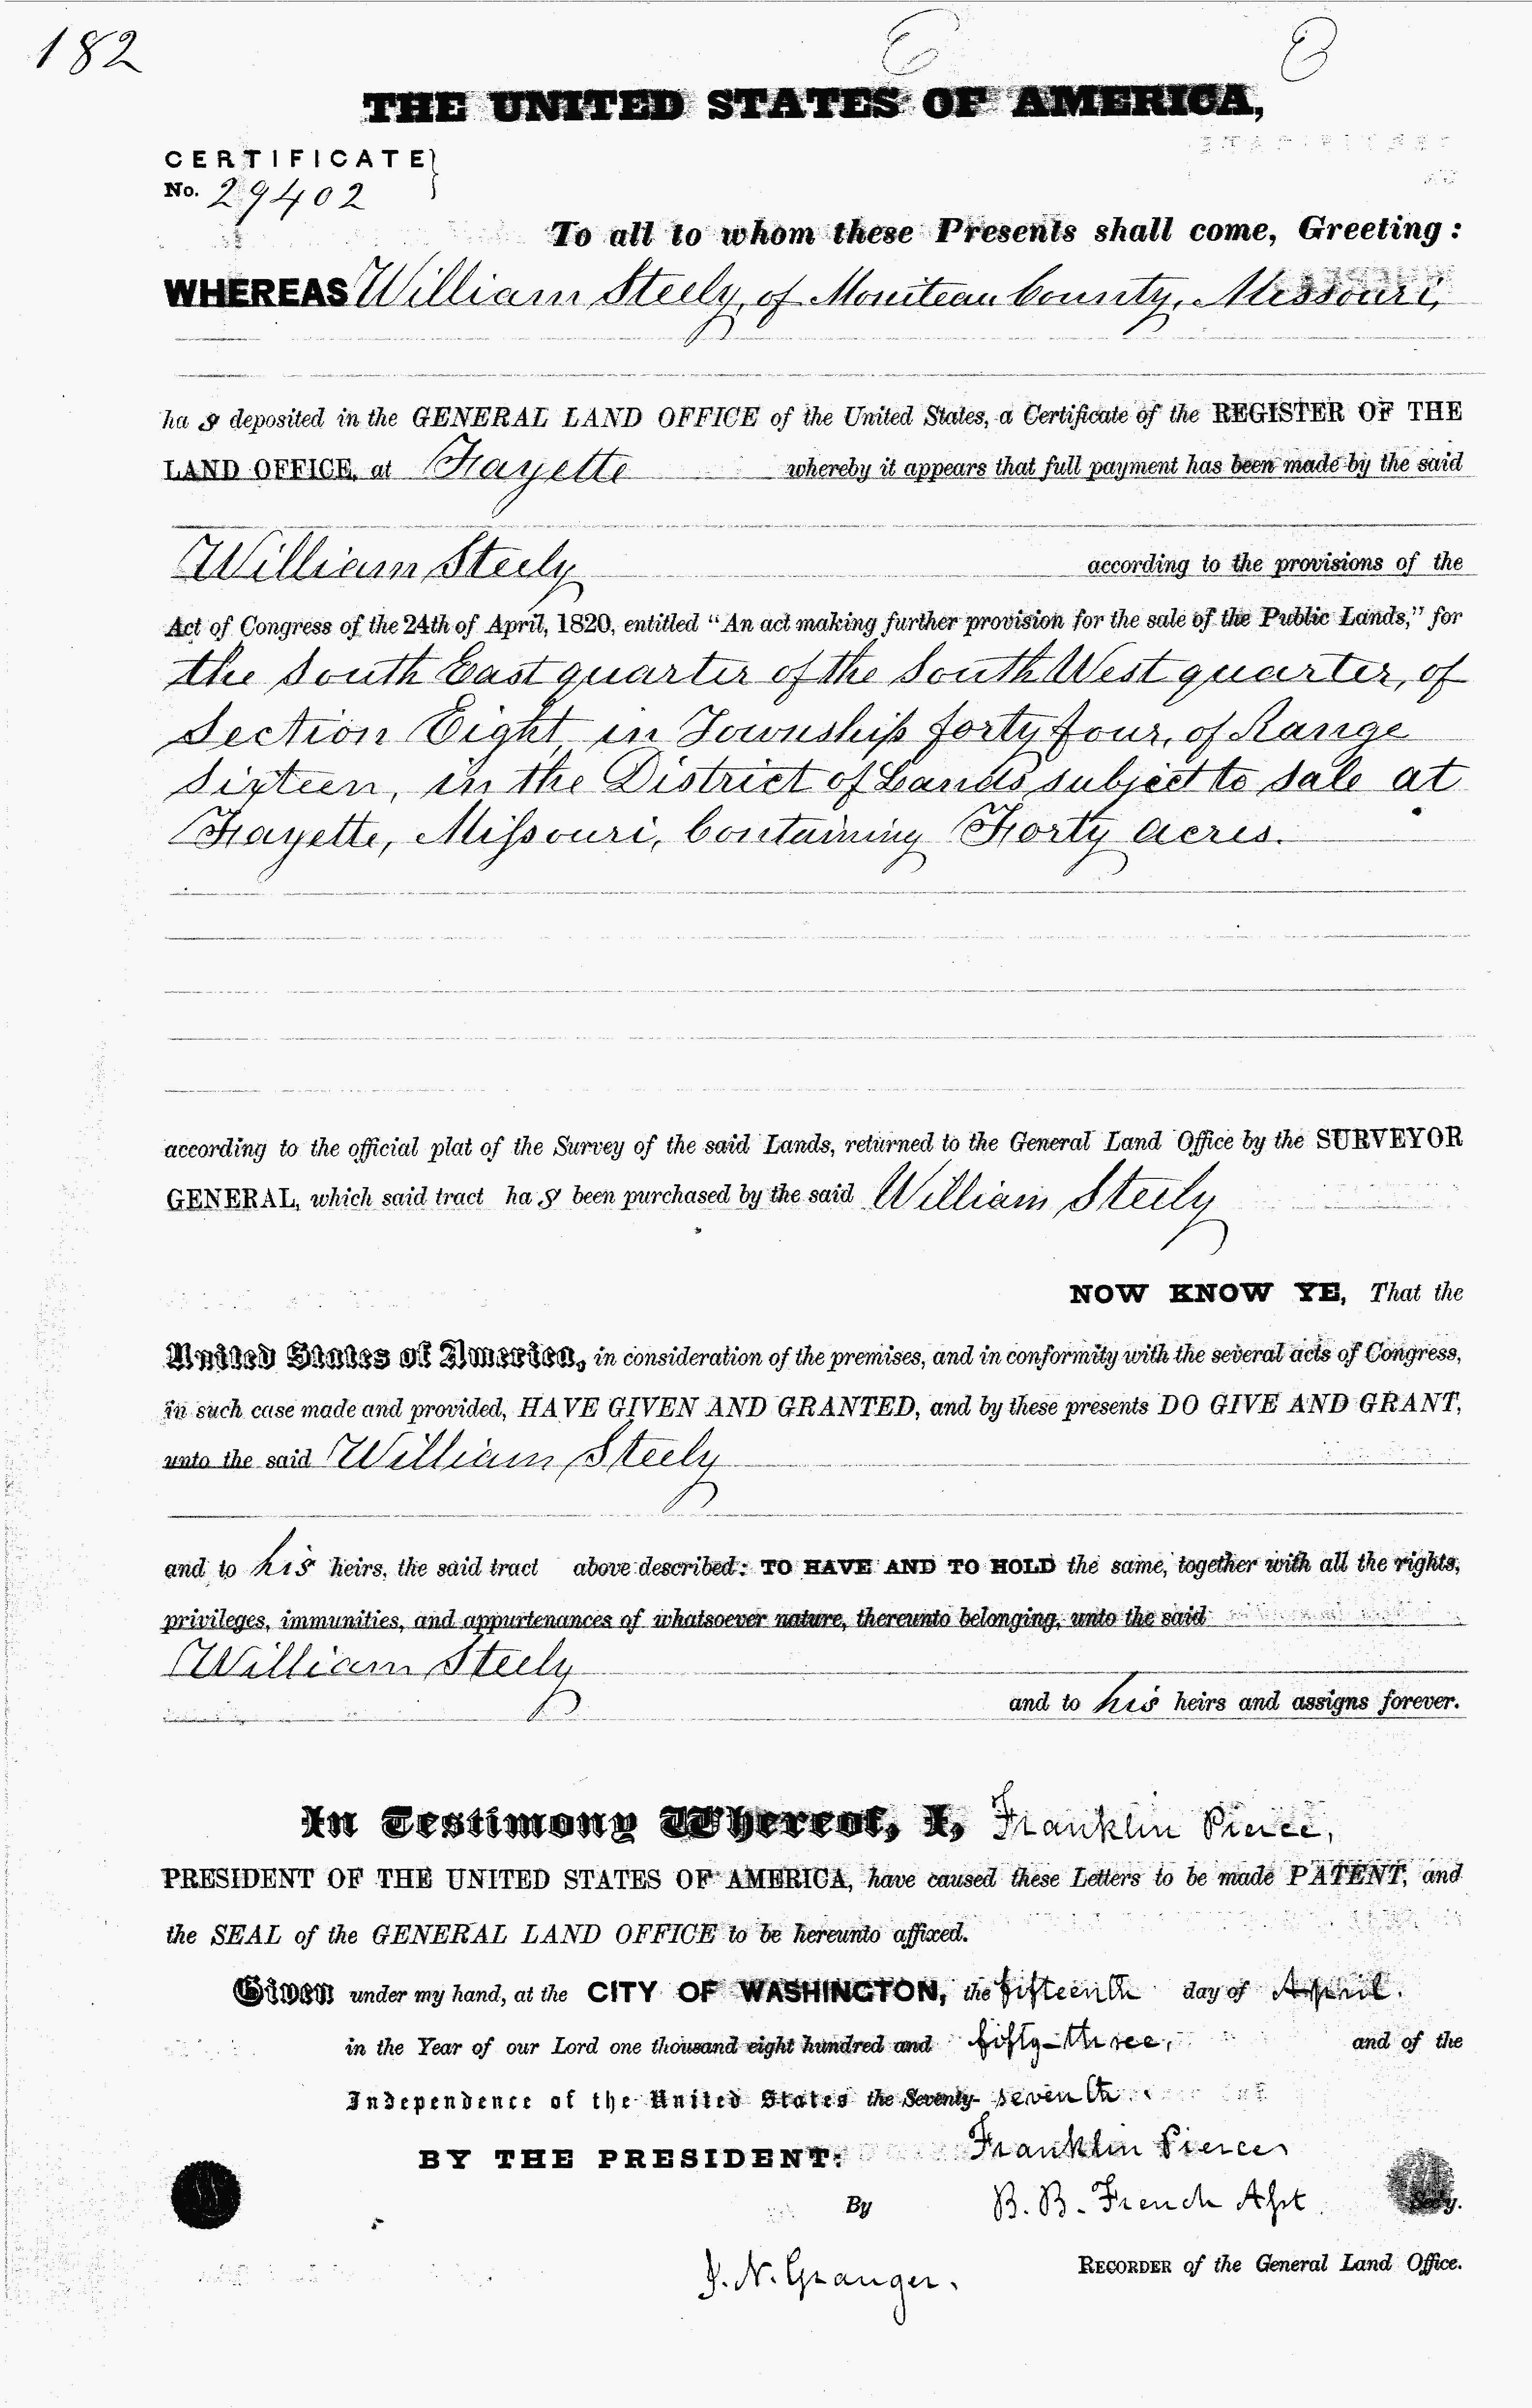 182
THE UNITED STATES OF AMERICA,
CERTIFICATE
No. 29402
To all to whom these Presents shall come, Greeting:
WHEREAS William Steely, of Moniteau County, Missouri,
ha s deposited in the GENERAL LAND OFFICE of the United States, a Certificate of the REGISTER OF THE
LAND OFFICE, at Fayette whereby it appears that full payment has been made by the said
William Steely according to the provisions of the
Act of Congress of the 24th of April, 1820, entitled "An act making further provision for the sale of the Public Lands," for
the South East quarter of the South West quarter, of
Section Eight, in Township forty four, of Range
Sixteen, in the District of Lands subject to Sale at
Fayette, Missouri, Containing Forty acres.
according to the official plat of the Survey of the said Lands, returned to the General Land Office by the SURVEYOR
GENERAL, which said tract ha s been purchased by the said William Steely
NOW KNOW YE, That the
United States of America, in consideration of the premises, and in conformity with the several acts of Congress,
in such case made and provided, HAVE GIVEN AND GRANTED, and by these presents DO GIVE AND GRANT,
unto the said William Steely
and to his heirs, the said tract above described: TO HAVE AND TO HOLD the same, together with all the rights,
privileges, immunities, and appurtenances of whatsoever nature, thereunto belonging, unto the said
William Steely
and to his heirs and assigns forever.
In Testimony Whereof, I, Franklin Pierce,
PRESIDENT OF THE UNITED STATES OF AMERICA, have caused these Letters to be made PATENT, and
the SEAL of the GENERAL LAND OFFICE to be hereunto affixed.
Given under my hand, at the CITY OF WASHINGTON, the fifteenth day of April.
in the Year of our Lord one thousand eight hundred and fifty-three, and of the
Independence of the United States the Seventy-seventh.
BY THE PRESIDENT: Franklin Pierce
By B. B. French Asst. Sec'y.
J. N. Granger. RECORDER of the General Land Office.